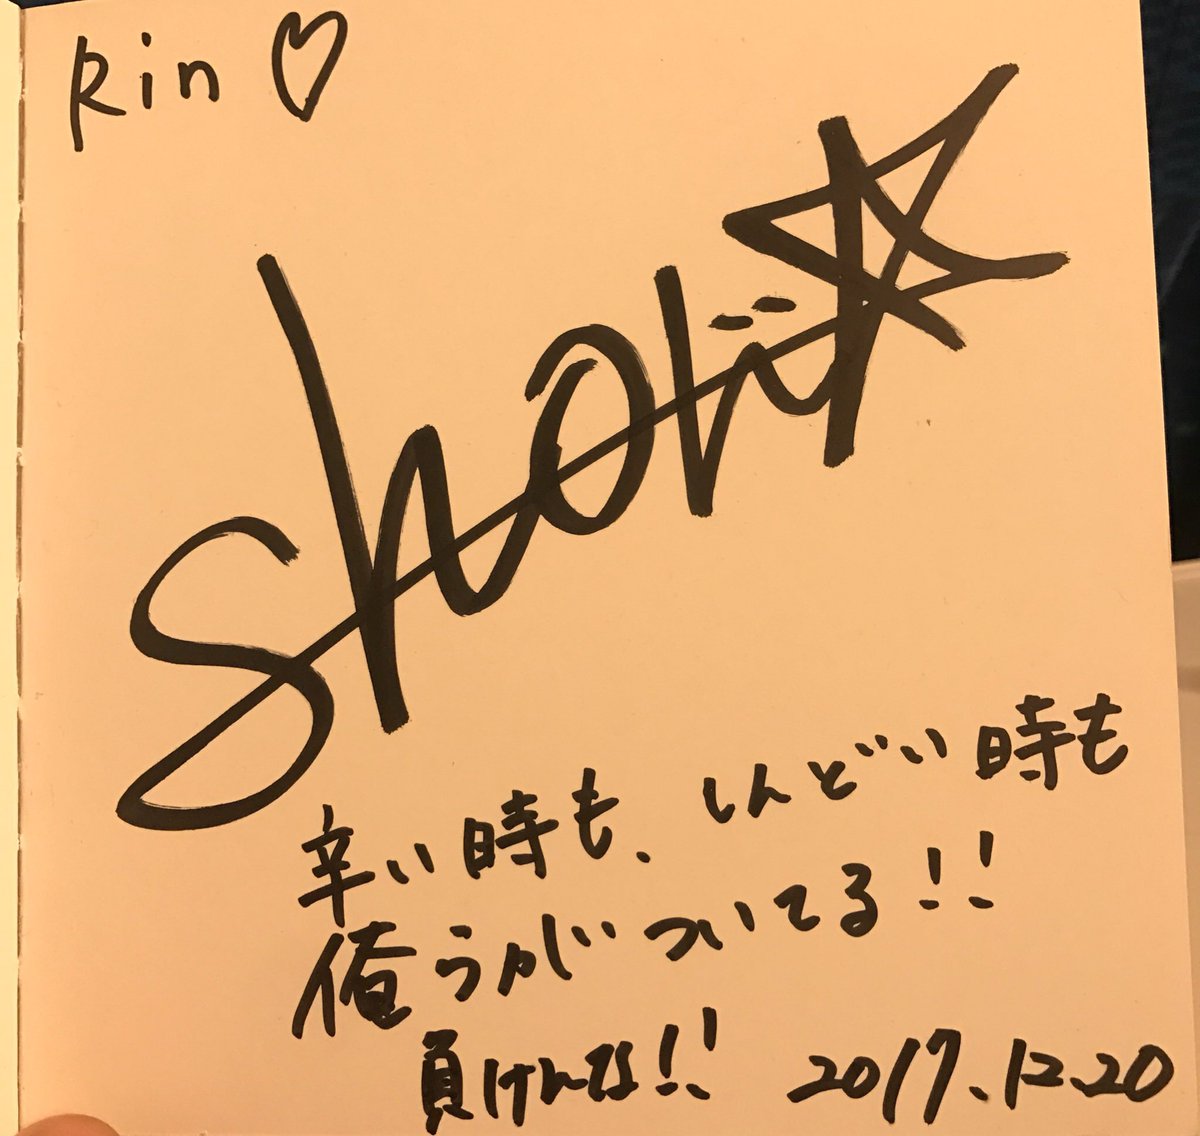 Rin ♡
Shori
辛い時も、しんどい時も
俺らがついてる!!
負けんな!!
2017.12.20